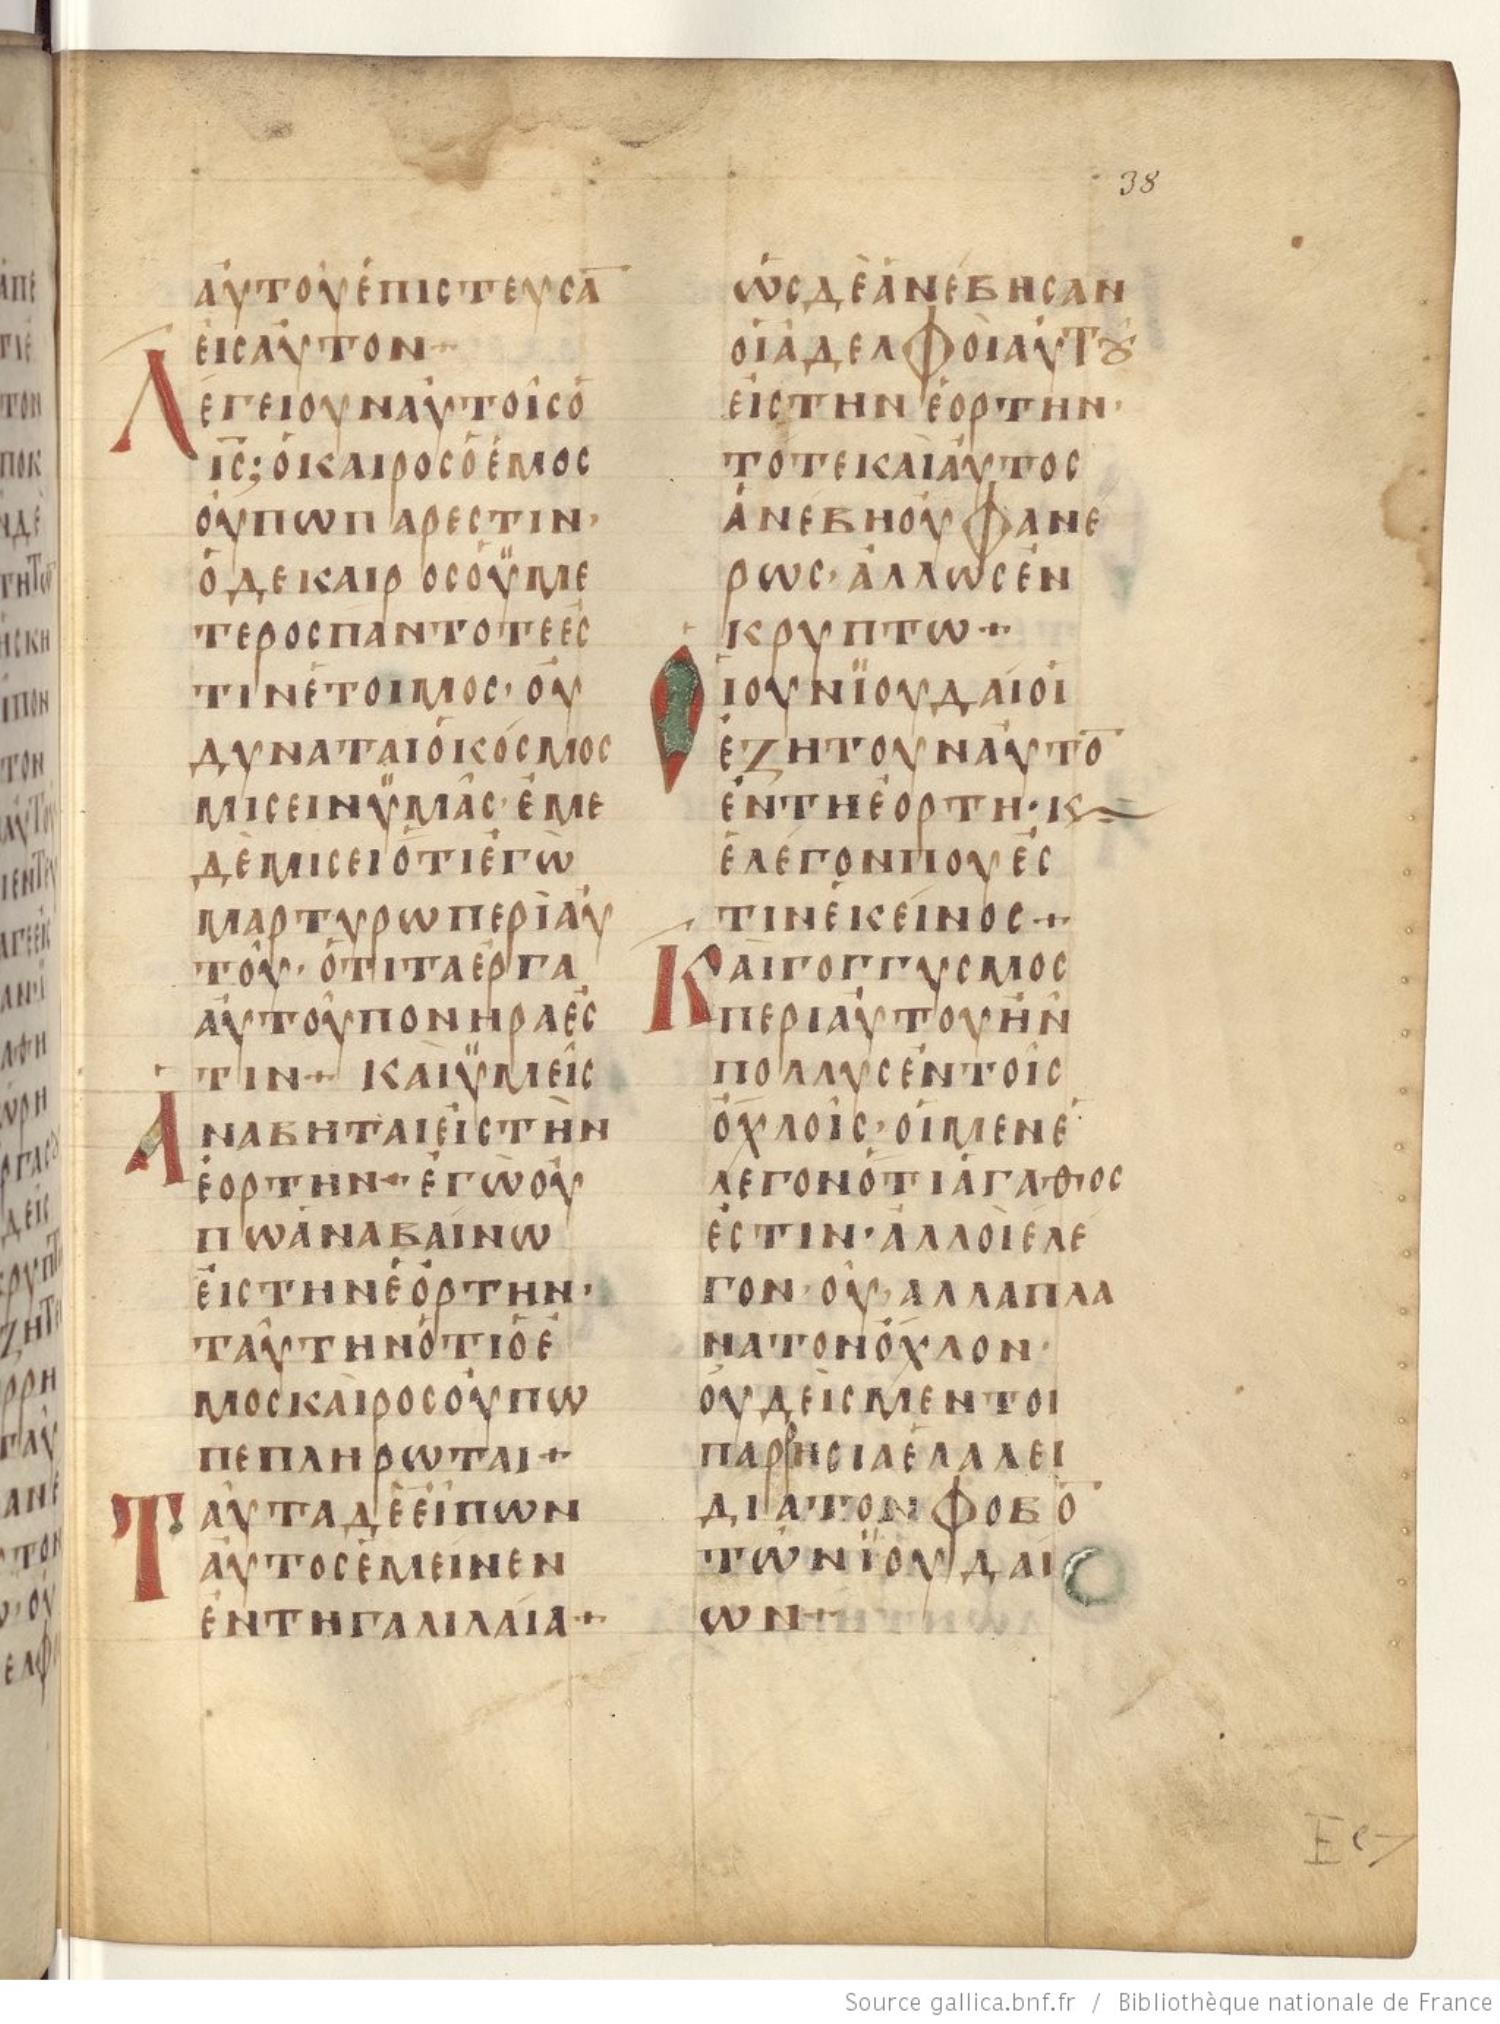 38
ἀυτοὺ ἐπιστευσα̅
ἐισ ἀυτον+
Λεγει ουν ἀυτοῖσ ὁ
ι̅σ̅; ὁ καιροσ ὁ ἐμοσ
ὀύπω παρεστιν·
ὁ δε καιροσ ὁ ϋμε
τεροσ παντοτε ἐσ
τιν ἑτοιμοσ· ὀυ
δυναται ὁ κόσμοσ
μισειν ϋμᾶσ· ἐμε
δὲ μισει ὅτι ἐγὼ
μαρτυρω περὶ ἀυ
τοῦ· ὅτι τα ἐργα
ἀυτοῦ πονηρα ἐσ
τιν+ καὶ ϋμεῖσ
Ἀναβηται ἐισ τὴν
ἑορτην+ ἐγὼ ὀυ
πω ἀναβαίνω
ἐισ την ἑόρτην·
ταύτην ὅτι ὁ ἐ
μοσ καὶροσ ὀυπω
πεπληρωται+
Ταυτα δὲ ἐιπων
ἀυτοσ ἐμεινεν
ἐν τη γαλιλαία+
ὡσ δὲ ἀνέβησαν
ὁι ἀδελφὸι ἀυτȣ
ἐισ την ἑορτην·
τότε καὶ ἀυτοσ
ἀνέβη ὀυ φανε
ρωσ· ἀλλ ωσ ἐν
κρυπτω+
Ὁι ουν ϊουδαίοι
ἐζητουν ἀυτο̅
ἐν τη ἑορτη· κ
ἐλέγον που ἐσ
τιν ἐκείνοσ+
Καὶ γογγυσμοσ
περι ἀυτου ἦν
πολλυσ ἐν τοῖσ
ὄχλοισ· ὁι μεν ἐ
λεγον ὅτι ἀγαθοσ
ἐστιν· ἀλλοὶ ἐλε
γον· ὀυ, αλλα πλα
να τον ὄχλον·
ὀυδεὶσ μεντοι
παρρησια ἐλαλει
δια τον φοβο̅
τῶν ϊουδαι
ων+
Source gallica.bnf.fr / Bibliothèque nationale de France